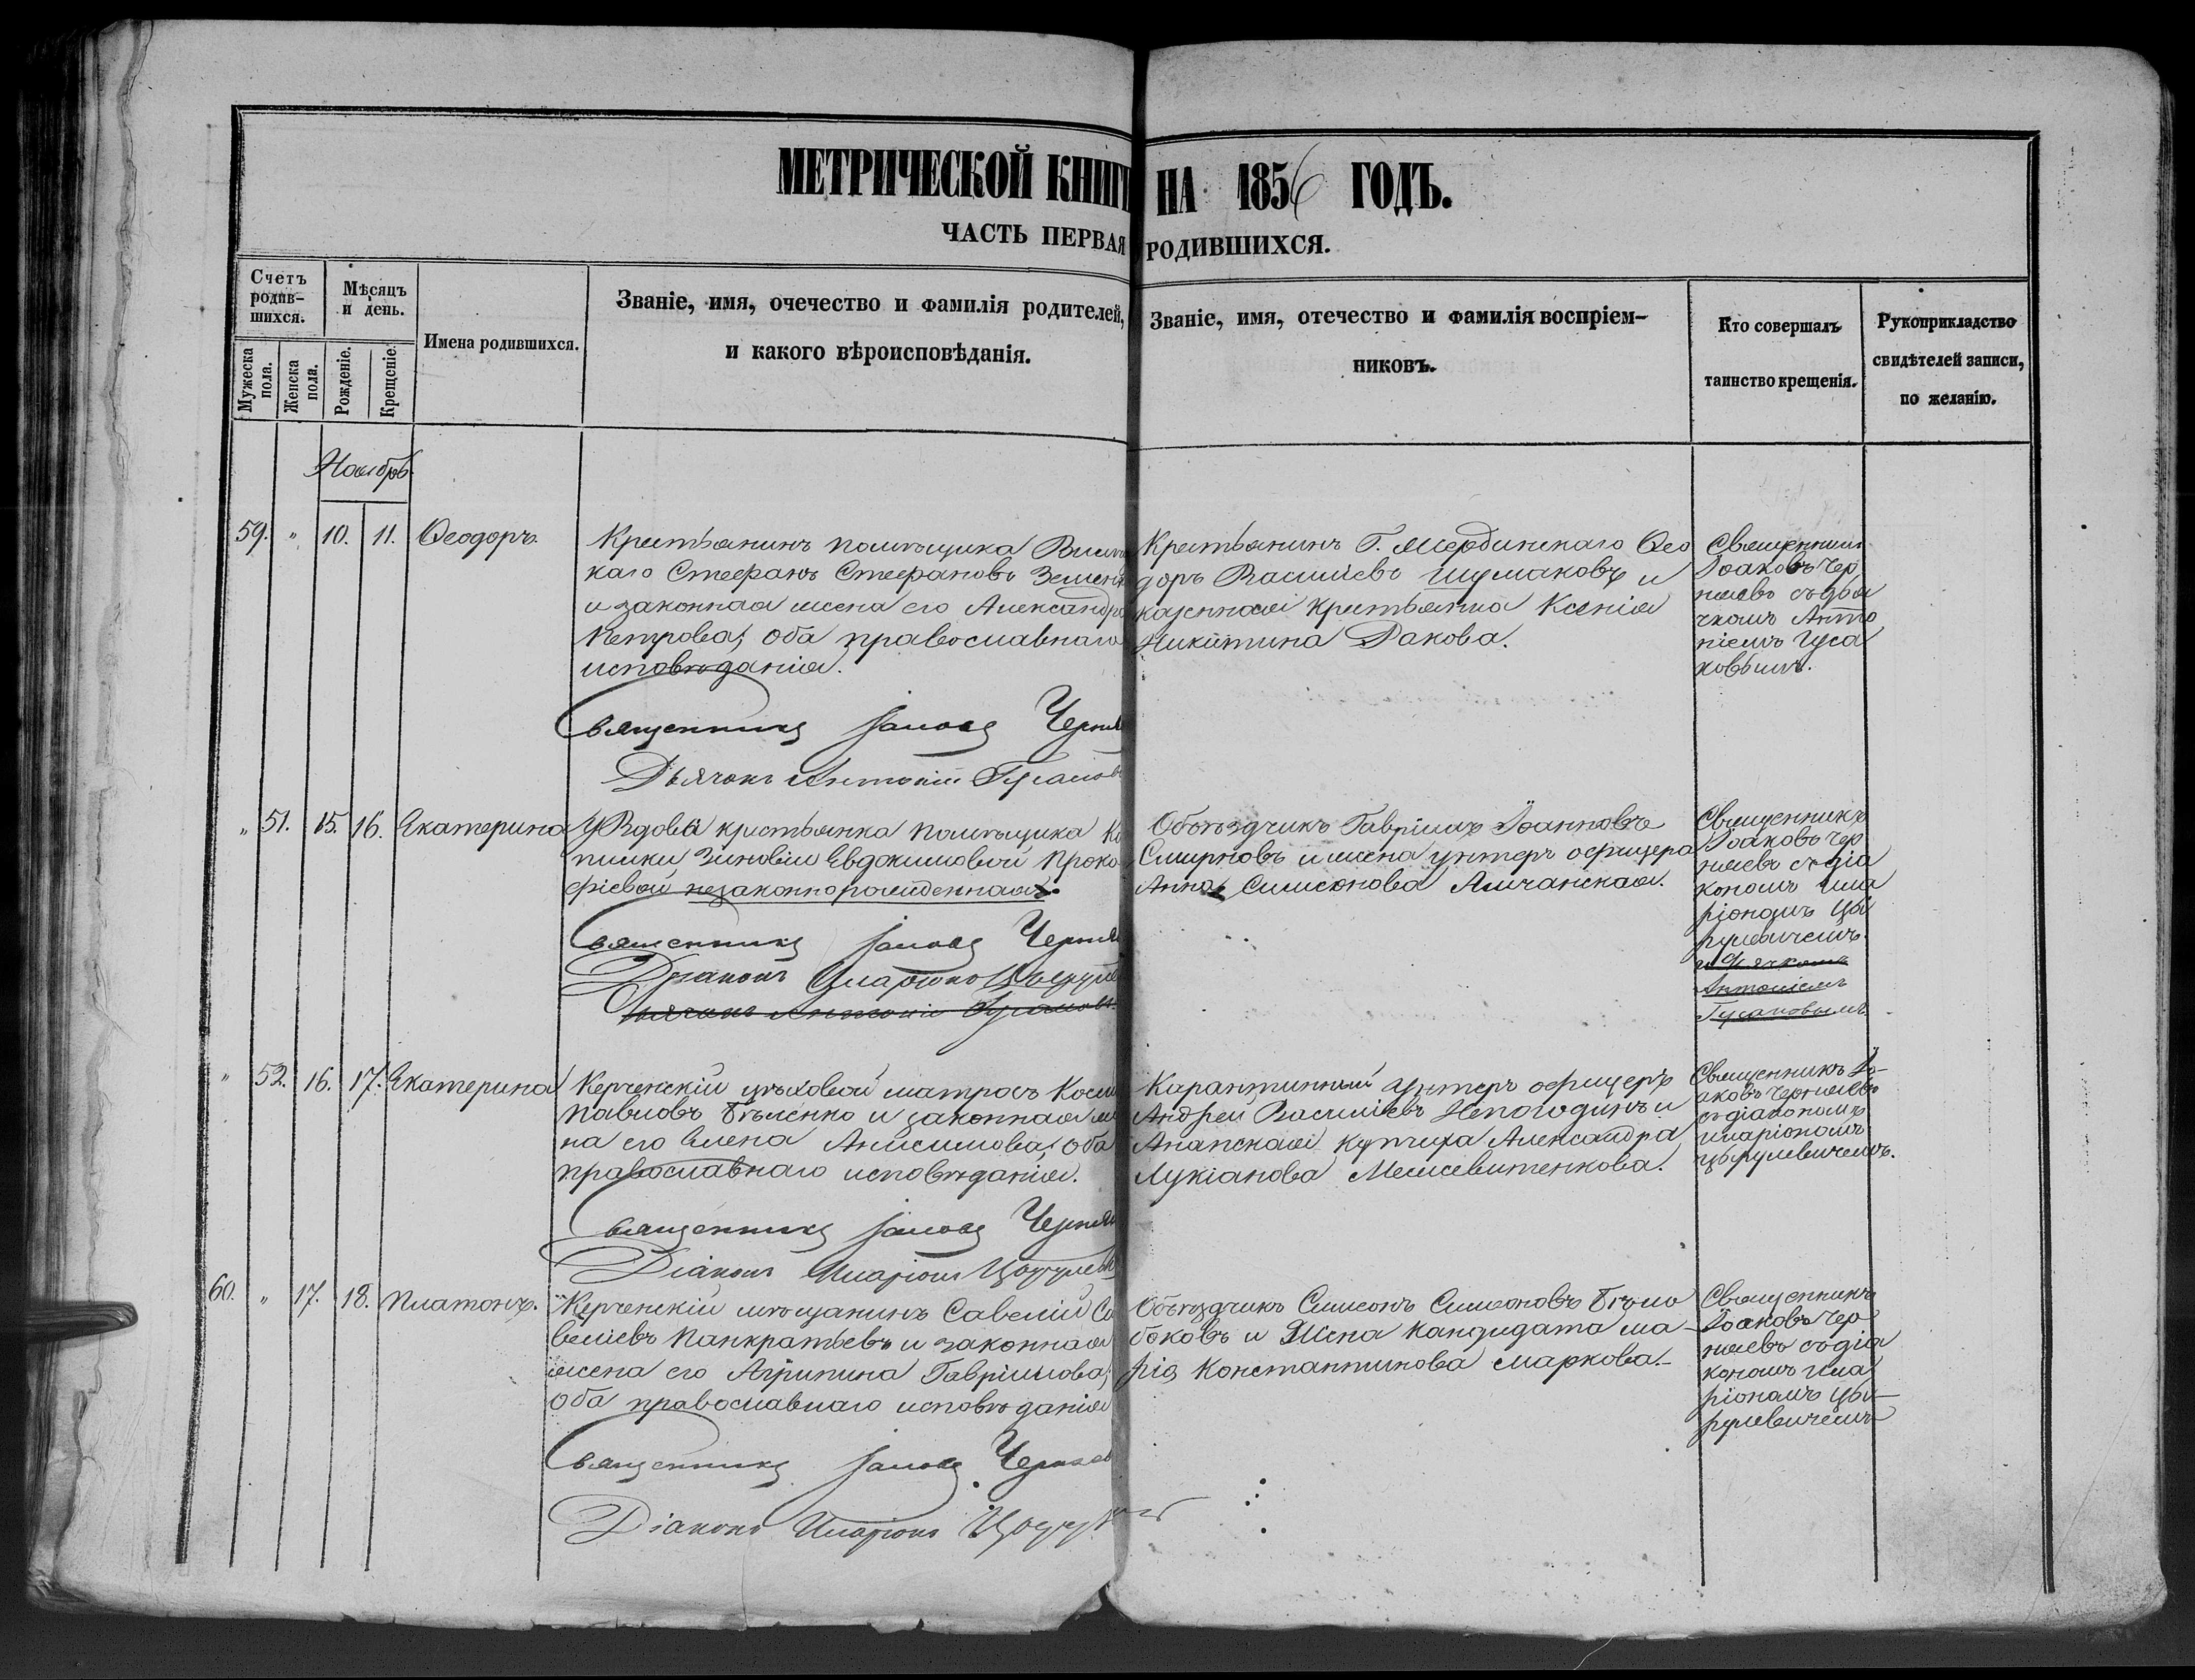 МЕТРИЧЕСКОЙ КНИГИ НА 1856 ГОДЪ.
ЧАСТЬ ПЕРВАЯ РОДИВШИХСЯ.
Счетъ родив-шихся.
Мужеска пола.
Женска пола.
Мѣсяцъ и день.
Рожденіе.
Крещеніе.
Имена родившихся.
Званіе, имя, очечество и фамилія родителей,
и какого вѣроисповѣданія.
Званіе, имя, отечество и фамилія воспріем-
никовъ.
Кто совершалъ
таинство крещенія.
Рукоприкладство
свидѣтелей записи,
по желанію.
Ноябрь
59. " 10. 11. Ѳеодоръ.
Крестьянинъ помѣщика
каго Стефанъ Стефановъ
и законная жена его Александра
Петрова, оба православнаго
исповѣданія.
Священникъ Іаковъ Черня
Дьячокъ Антоній Гусаковъ
Крестьянинъ Г. Ѳео
доръ Васильевъ Шумаковъ и
казенная крестьянка Ксенія
Никитина Ракова.
Священникъ
Іоаковъ Чер
няевъ съ дья
чкомъ Анто
ніемъ Гуса
ковымъ.
" 51. 15. 16. Екатерина
У Вдовы крестьянка помѣщика
Зиновіи Евдокимовой Проко
фіевой незаконнорожденная.
Священникъ Іаковъ Черня
Діаконъ Иларіонъ
Дьячокъ Антоній Гусаковъ
Объѣздчикъ Гавріилъ Іоанновъ
Смирновъ и жена унтеръ офицера
Анна Симеонова
Священникъ
Іоаковъ Чер
няевъ съ діа
кономъ Ила
ріономъ Цы
рулевичемъ.
и Дьячкомъ
Антоніемъ
Гусаковымъ
" 52. 16. 17. Екатерина
Керченскій цѣховой матросъ Косма
Павловъ Бѣленко и законная же
на его Елена Анисимова, оба
православнаго исповѣданія.
Священникъ Іаковъ Черня
Діаконъ Иларіонъ Цырулев
Карантинный унтеръ офицеръ
Андрей Васильевъ Непогодинъ и
Анапская купчиха Александра
Лукіанова
Священникъ Іо-
аковъ Черняевъ
съ діакономъ
Иларіономъ
Цырулевичемъ.
60. " 17. 18. Платонъ.
Керченскій мѣщанинъ Савелій Са
веліевъ Панкратьевъ и законная
жена его Агрипина Гавріилова,
оба православнаго исповѣданія
Священникъ Іаковъ Черняев
Діаконъ Иларіонъ
Объѣздчикъ Симеонъ Симеоновъ Бѣло
боковъ и Жена кандидата Ма-
рія Константинова Маркова.-
Священникъ
Іоаковъ Чер
няевъ съ діа
кономъ Ила
ріономъ Цы-
рулевичемъ